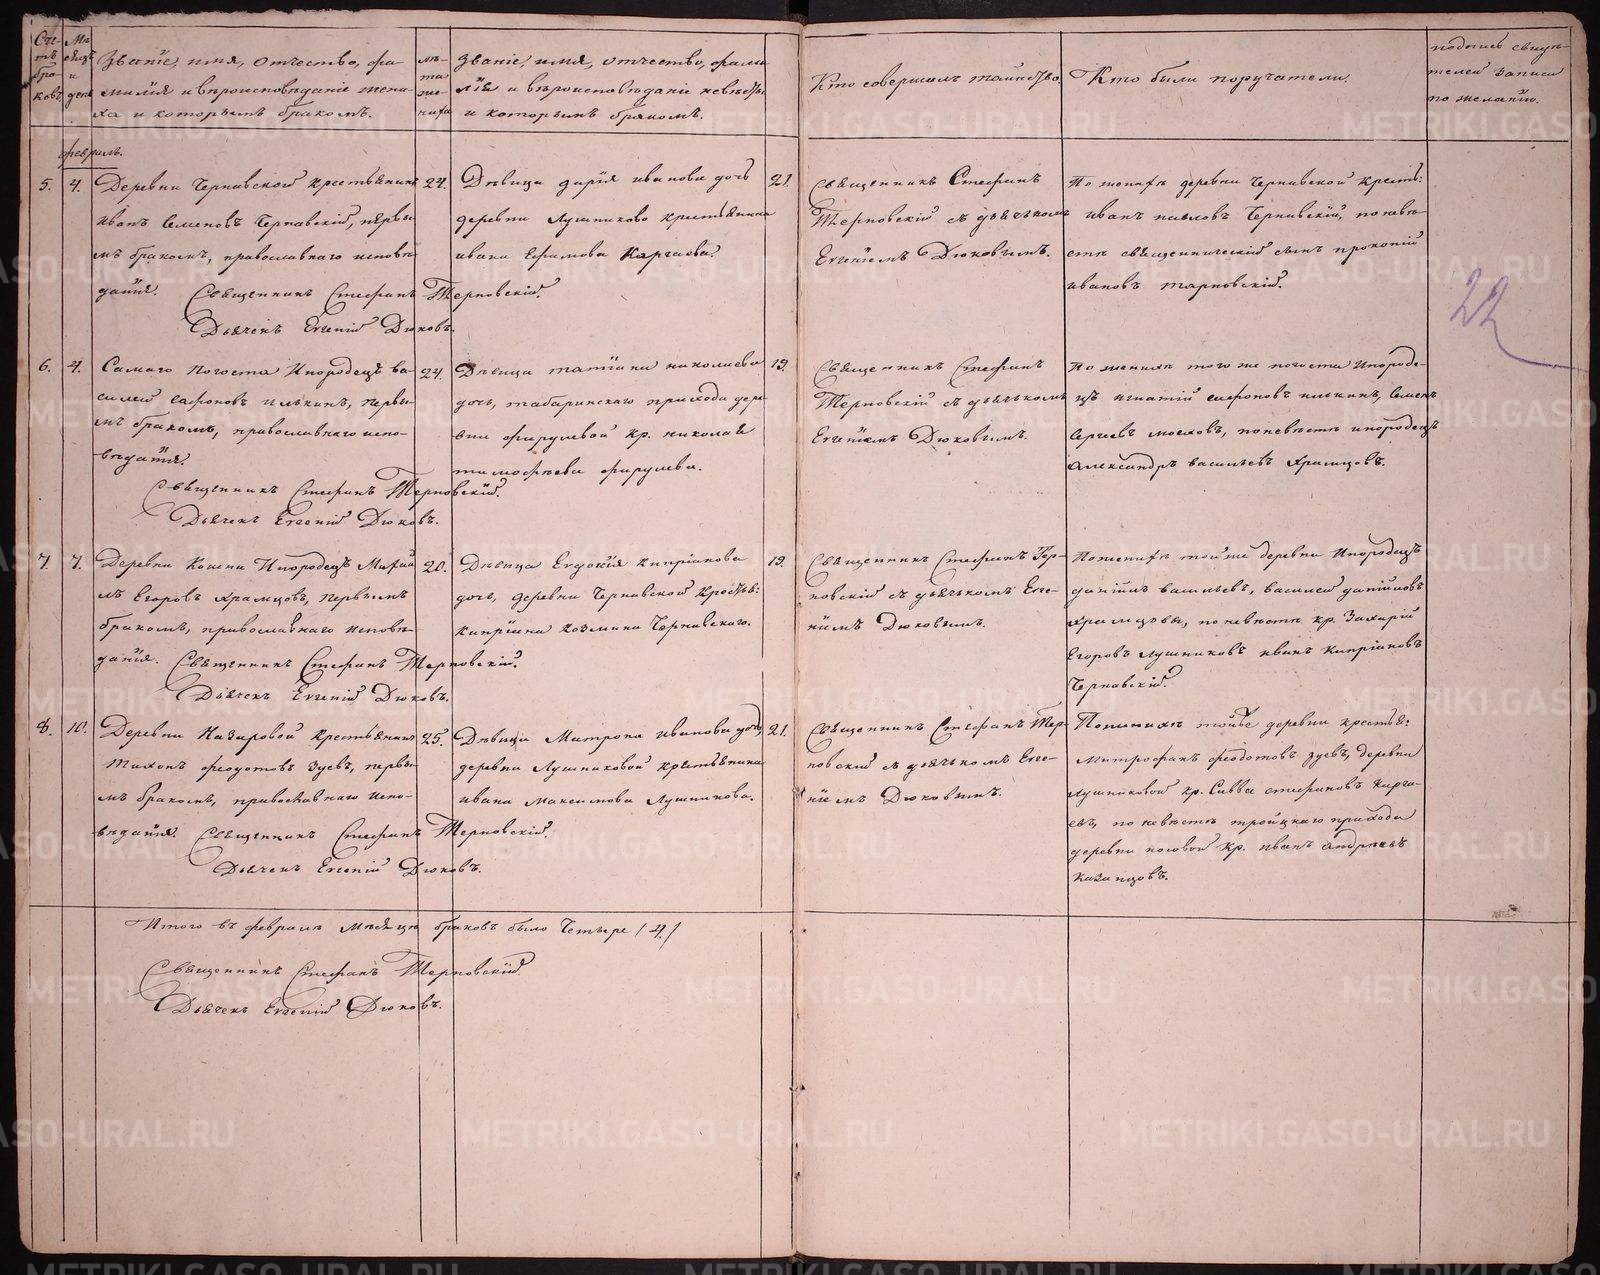 Счетъ браковъ
Мѣсяцъ и день
Званіе, имя, отчество, фа-
милія и вѣроисповѣданіе жени-
ха и которымъ бракомъ.
лѣта жениха
Званіе, имя, отчество, фами
лія и вѣроисповѣданіе невѣсты
и которымъ бракомъ.
Кто совершалъ таинство.
Кто были поручатели.
подпись свидѣ-
телей записи
по желанію.
февраль.
5. 4.
Деревни Чернавской крестьянинъ
Иванъ Семеновъ Чернавскій, первы
мъ бракомъ, православнаго исповѣ
данія. Священникъ Стефанъ Терновскій.
Дьячекъ Евгеній Дюковъ.
24.
Дѣвица дарія иванова дочь
деревни Лушниково крестьянина
ивана Ефимова Каргаева.
21.
Священникъ Стефанъ
Терновскій съ дьячькомъ
Евгеніемъ Дюковымъ.
По женихѣ деревни Чернавской крестъ:
иванъ павловъ Чернавскій, по невѣ
стѣ священническій сынъ прокопій
ивановъ тярновскій.
22
6. 4.
Самаго Погоста Инородецъ ва-
силей сафоновъ илькинъ, первы-
мъ бракомъ, православнаго испо-
вѣданія.
Священникъ Стефанъ Терновскій.
Дьячекъ Евгеній Дюковъ.
24.
Дѣвица татіана николаева
дочь, табаринскаго прихода дере-
вни фирулевой кр. николая
тимофѣева фирулева.
19.
Священникъ Стефанъ
Терновскій съ дьячькомъ
Евгеніемъ Дюковымъ.
По женихѣ того же погоста Инороде-
цъ игнатій сафоновъ илькинъ, Семенъ
Сергѣевъ , по невѣстѣ инородецъ
Александръ васильевъ храмцовъ.
7. 7.
Деревни Кошни Инородецъ Михаи
лъ Егоровъ храмцовъ, первымъ
бракомъ, православнаго исповѣ-
данія. Священникъ Стефанъ Терновскій.
Дьячекъ Евгеній Дюковъ.
20.
Дѣвица Евдокія кипріянова
дочь, деревни Чернавской крестьъ:
Кипріяна Козмина Чернавскаго.
19.
Священникъ Стефанъ Тер-
новскій съ дьячькомъ Евге-
ніемъ Дюковымъ.
По женихѣ той же деревни Инородецъ
даніилъ васильевъ, василей даніиловъ
храмцовы, по невѣстѣ кр. Захарій
Егоровъ Лушниковъ иванъ Кипріановъ
Чернавскій.
8. 10.
Деревни Назаровой крестьянинъ
Тихонъ феодотовъ Зуевъ, первы-
мъ бракомъ, православнаго испо-
вѣданія. Священникъ Стефанъ Терновскій.
Дьячекъ Евгеній Дюковъ.
25.
Дѣвица Матрона иванова дочь,
деревни Лушниковой крестьянина
ивана Максимова Лушникова.
21.
Священникъ Стефанъ Тер-
новскій съ дьячькомъ Евге-
ніемъ Дюковымъ.
По женихѣ той же деревни крестья:
митрофанъ феодотовъ зуевъ, деревни
Лушниковой кр. Савва стефановъ Карга-
евъ, по невѣстѣ троицкаго прихода
деревни носовой кр. иванъ андреевъ
Казанцовъ.
Итого въ февралѣ мѣсяцѣ браковъ было Четыре /4/
Священникъ Стефанъ Терновскій.
Дьячекъ Евгеній Дюковъ.
METRIKI.GASO-URAL.RU